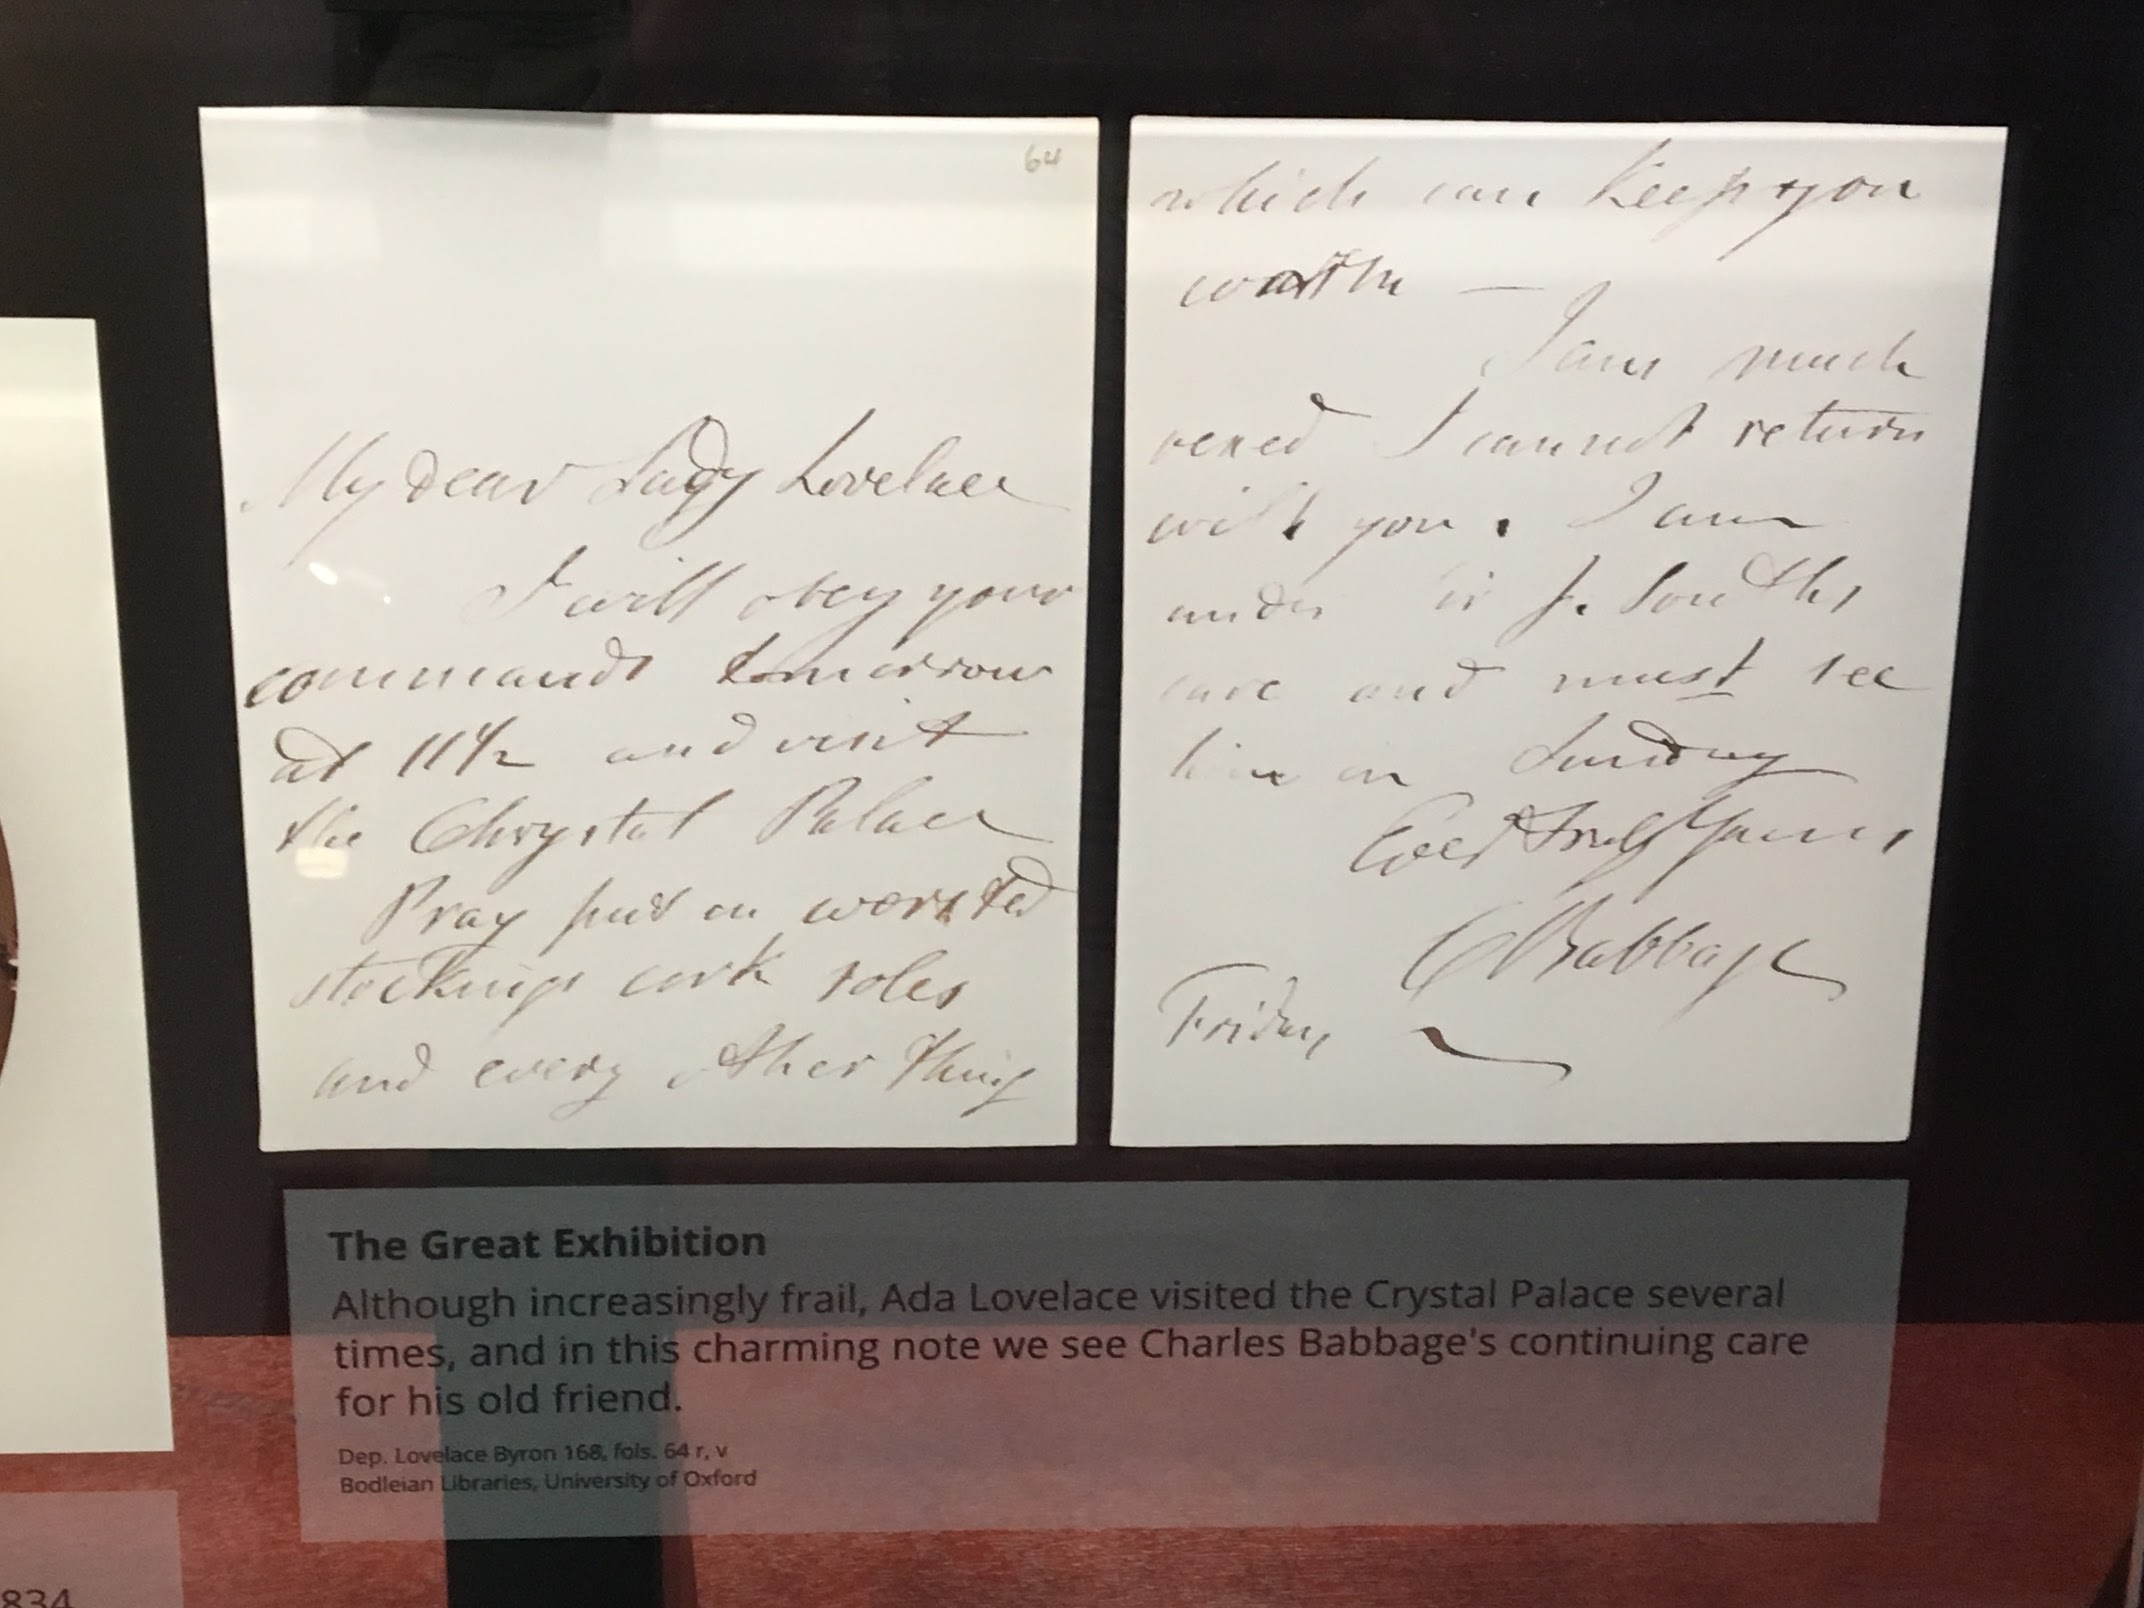 64
My dear Lady Lovelace
I will obey your
commands tomorrow
at 11 1/2 and visit
the Chrystal Palace
Pray put on worsted
stockings cork soles
and every other thing
which can keep you
warm —
I am much
vexed I cannot return
with you. I am
under Sir J. Souths
care and must see
him on Sunday
Ever Truly Yours
C Babbage
Friday
The Great Exhibition
Although increasingly frail, Ada Lovelace visited the Crystal Palace several
times, and in this charming note we see Charles Babbage's continuing care
for his old friend.
Dep. Lovelace Byron 168, fols. 64 r, v
Bodleian Libraries, University of Oxford
834